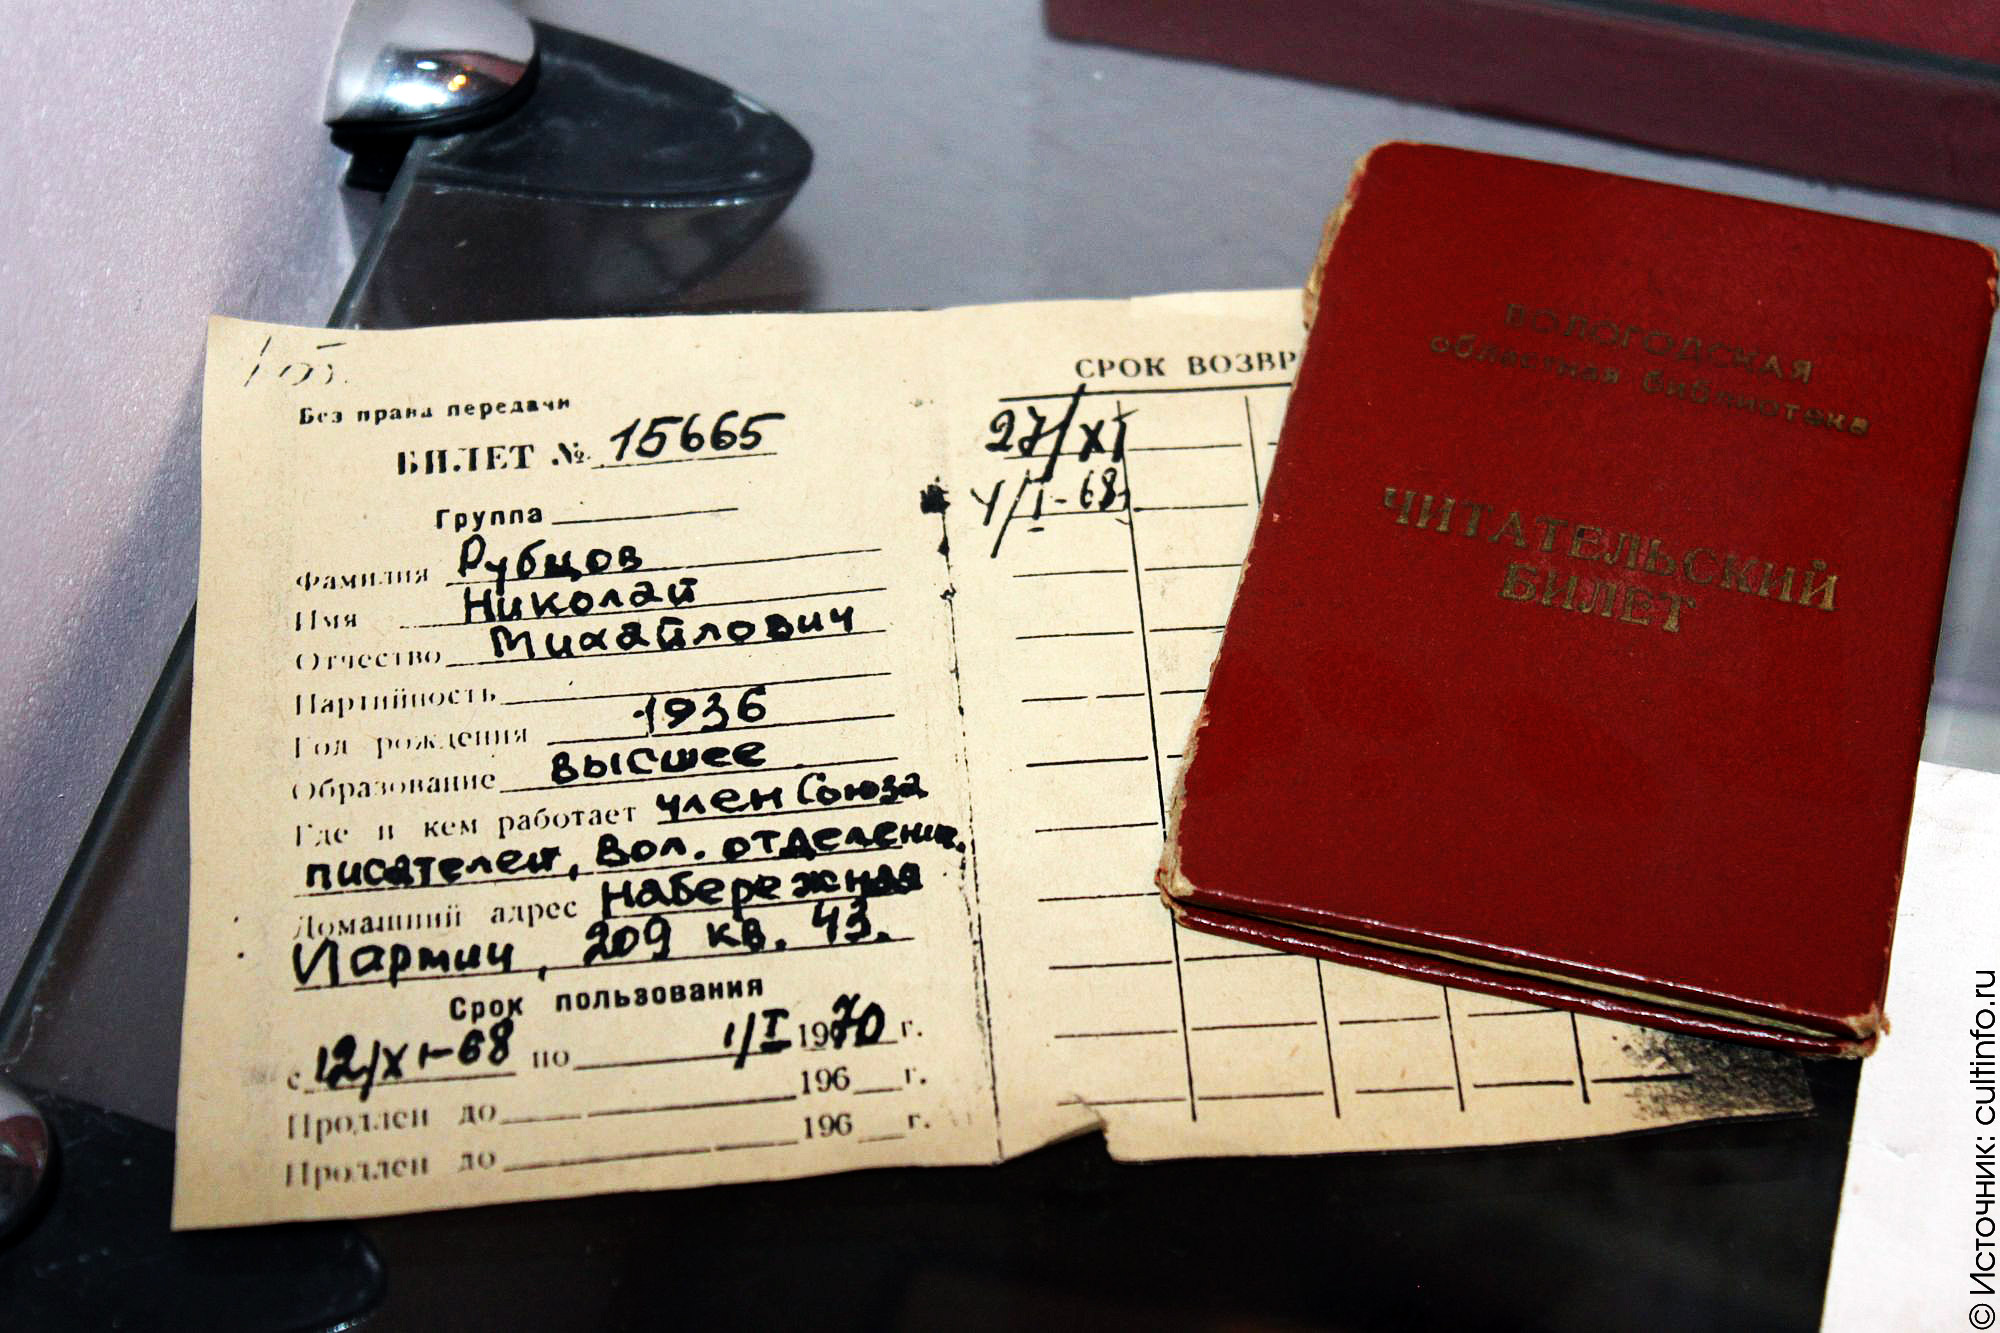 Без права передачи
БИЛЕТ № 15665
Группа
Фамилия Рубцов
Имя Николай
Отчество Михайлович
Партийность
Год рождения 1936
Образование высшее
Где и кем работает член Союза
писателей, Вол. отделение.
Домашний адрес Набережная
VI Армии, 209 кв. 43.
Срок пользования
с 12/XI-68 по 1/I 1970 г.
Продлен до 196 г.
Продлен до 196 г.
СРОК ВОЗВР
27/XI
4/I-68
ВОЛОГОДСКАЯ
областная библиотека
ЧИТАТЕЛЬСКИЙ
БИЛЕТ
© Источник: cultinfo.ru